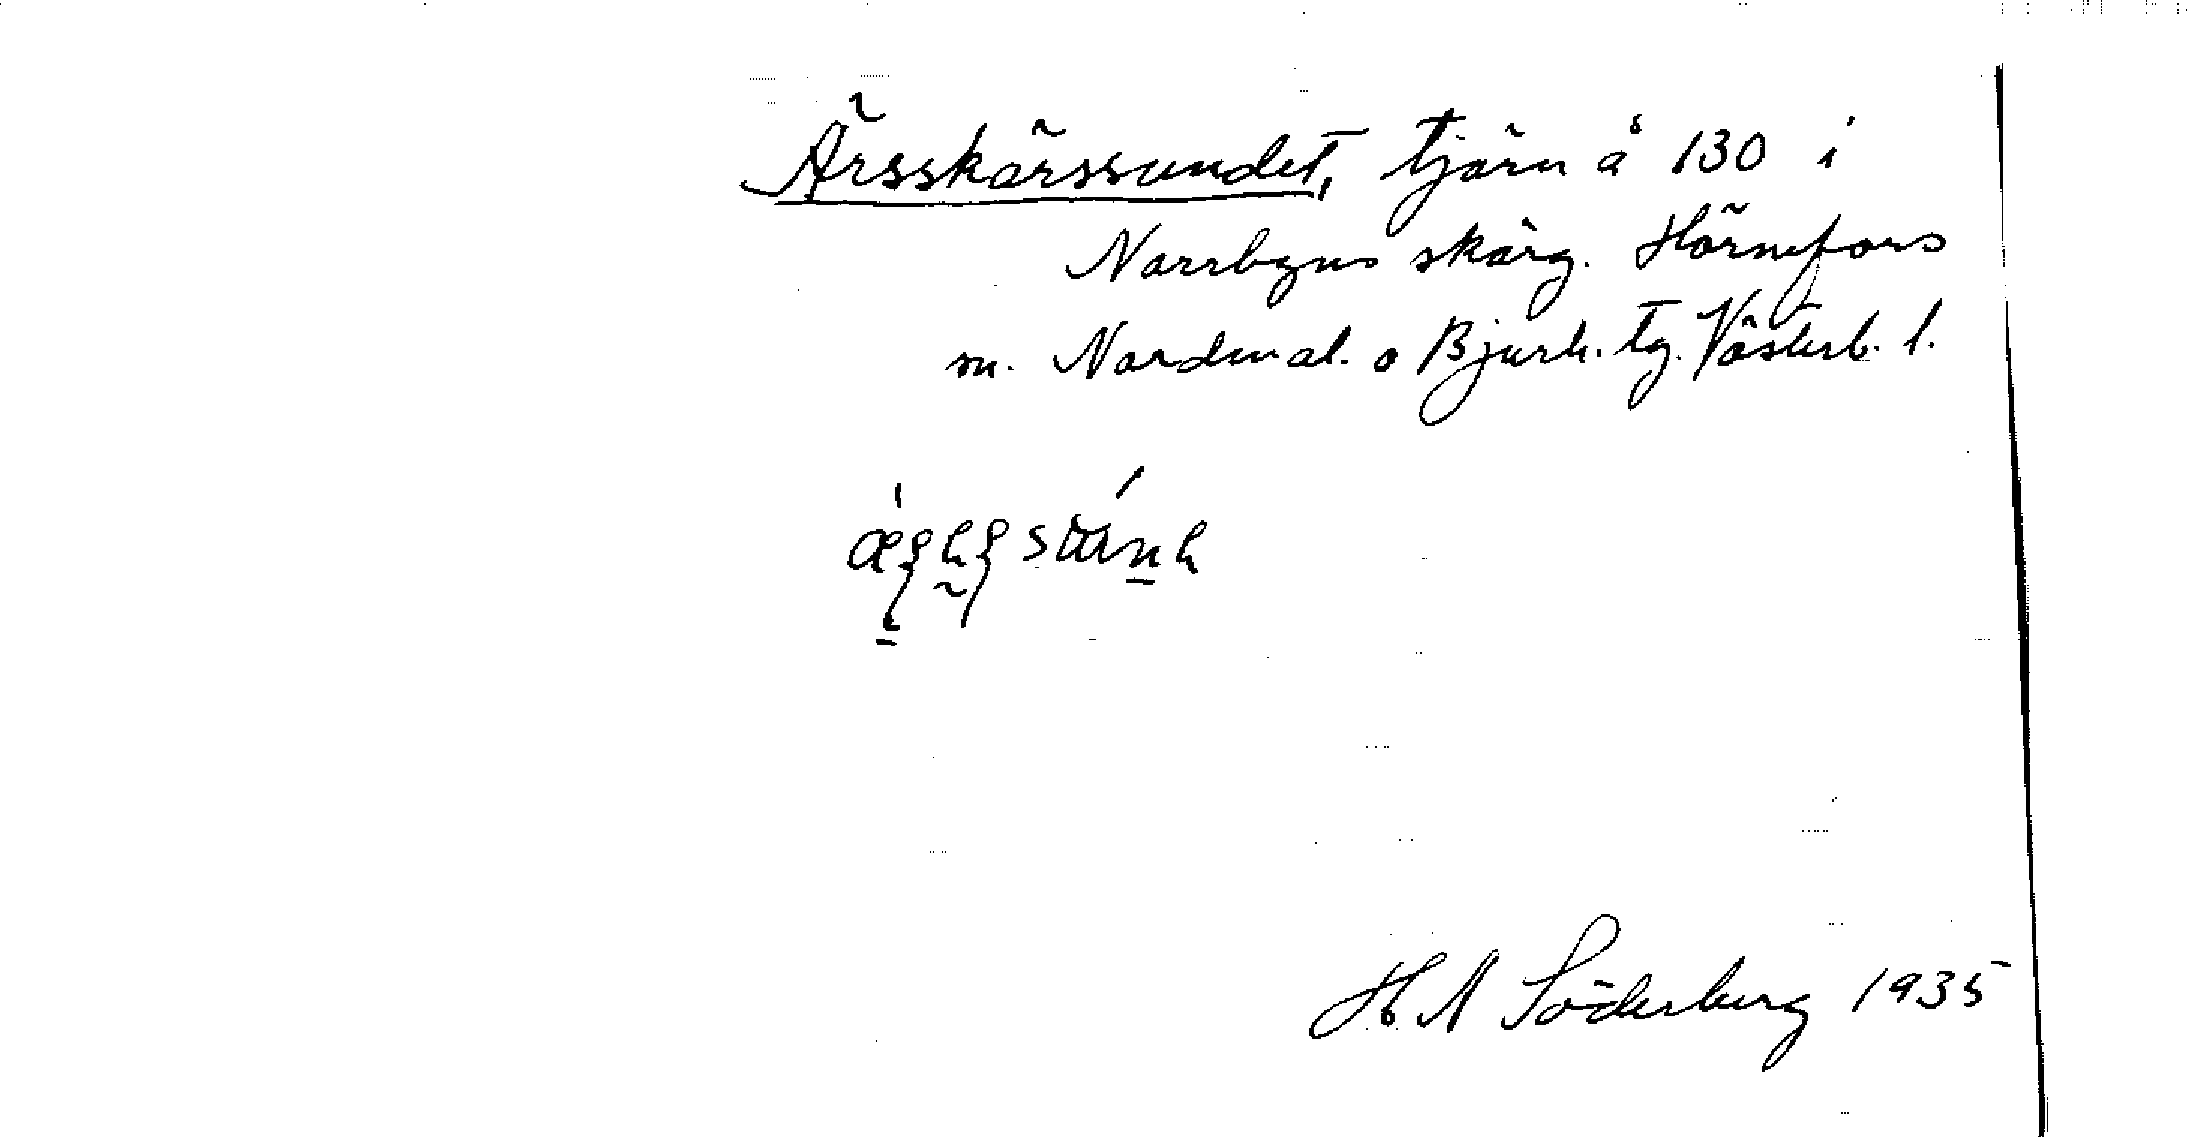 Ärsskärssundet, tjärn å 130 i
Norrbyns skärg. Hörnefors
sn. Nordmal. o Bjurh. tg. Västerb. l.
H A Söderberg 1935